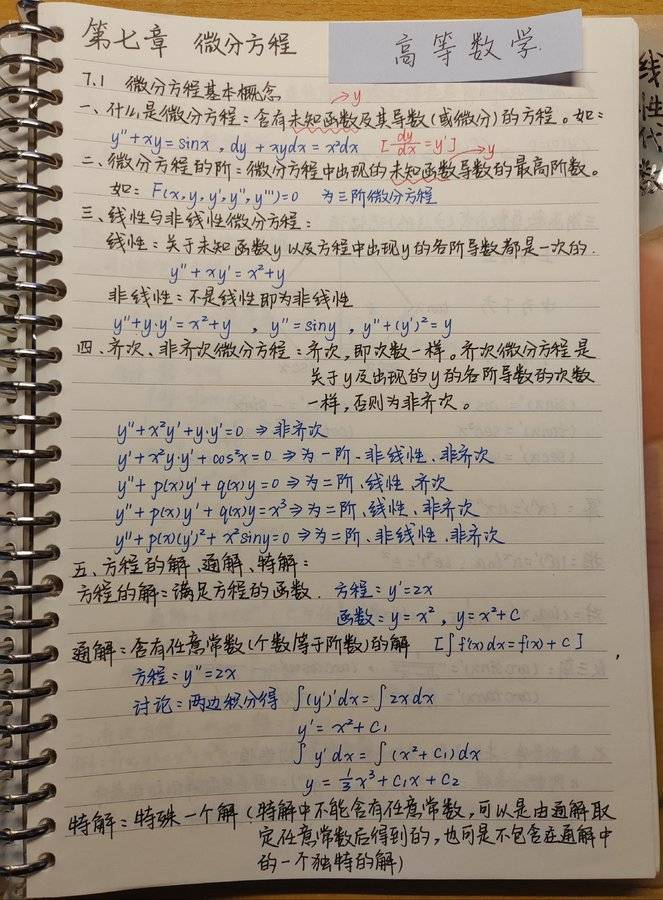 第七章 微分方程
高等数学.
线性代数
7.1 微分方程基本概念
→y
一、什么是微分方程：含有未知函数及其导数(或微分)的方程。如：
y″+xy=sinx , dy+xydx=x³dx [dy/dx=y′]
→y
二、微分方程的阶：微分方程中出现的未知函数导数的最高阶数。
如：F(x,y,y′,y″,y‴)=0 为三阶微分方程
三、线性与非线性微分方程：
线性：关于未知函数y以及方程中出现y的各阶导数都是一次的.
y″+xy′=x²+y
非线性：不是线性即为非线性
y″+y·y′=x²+y , y″=siny , y″+(y′)²=y
四、齐次、非齐次微分方程：齐次，即次数一样。齐次微分方程是
关于y及出现的y的各阶导数的次数
一样，否则为非齐次。
y″+x²y′+y·y′=0 ⇒非齐次
y′+x²y·y′+cos²x=0 ⇒为一阶、非线性、非齐次
y″+p(x)y′+q(x)y=0 ⇒为二阶、线性、齐次
y″+p(x)y′+q(x)y=x³ ⇒为二阶、线性、非齐次
y″+p(x)(y′)²+x²siny=0 ⇒为二阶、非线性、非齐次
五、方程的解、通解、特解：
方程的解：满足方程的函数. 方程：y′=2x
函数：y=x² , y=x²+C
通解：含有任意常数(个数等于阶数)的解 [∫f′(x)dx=f(x)+C]
方程：y″=2x
讨论：两边积分得 ∫(y′)′dx=∫2xdx
y′=x²+C₁
∫y′dx=∫(x²+C₁)dx
y=⅓x³+C₁x+C₂
特解：特殊一个解(特解中不能含有任意常数，可以是由通解取
定任意常数后得到的，也可是不包含在通解中
的一个独特的解)